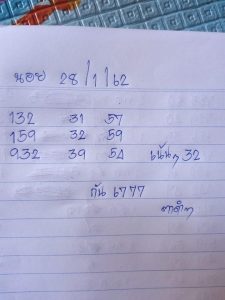 นอย 28/1/62
132 31 57
159 32 59
932 39 54 เน้นๆ 32
กัน 6777